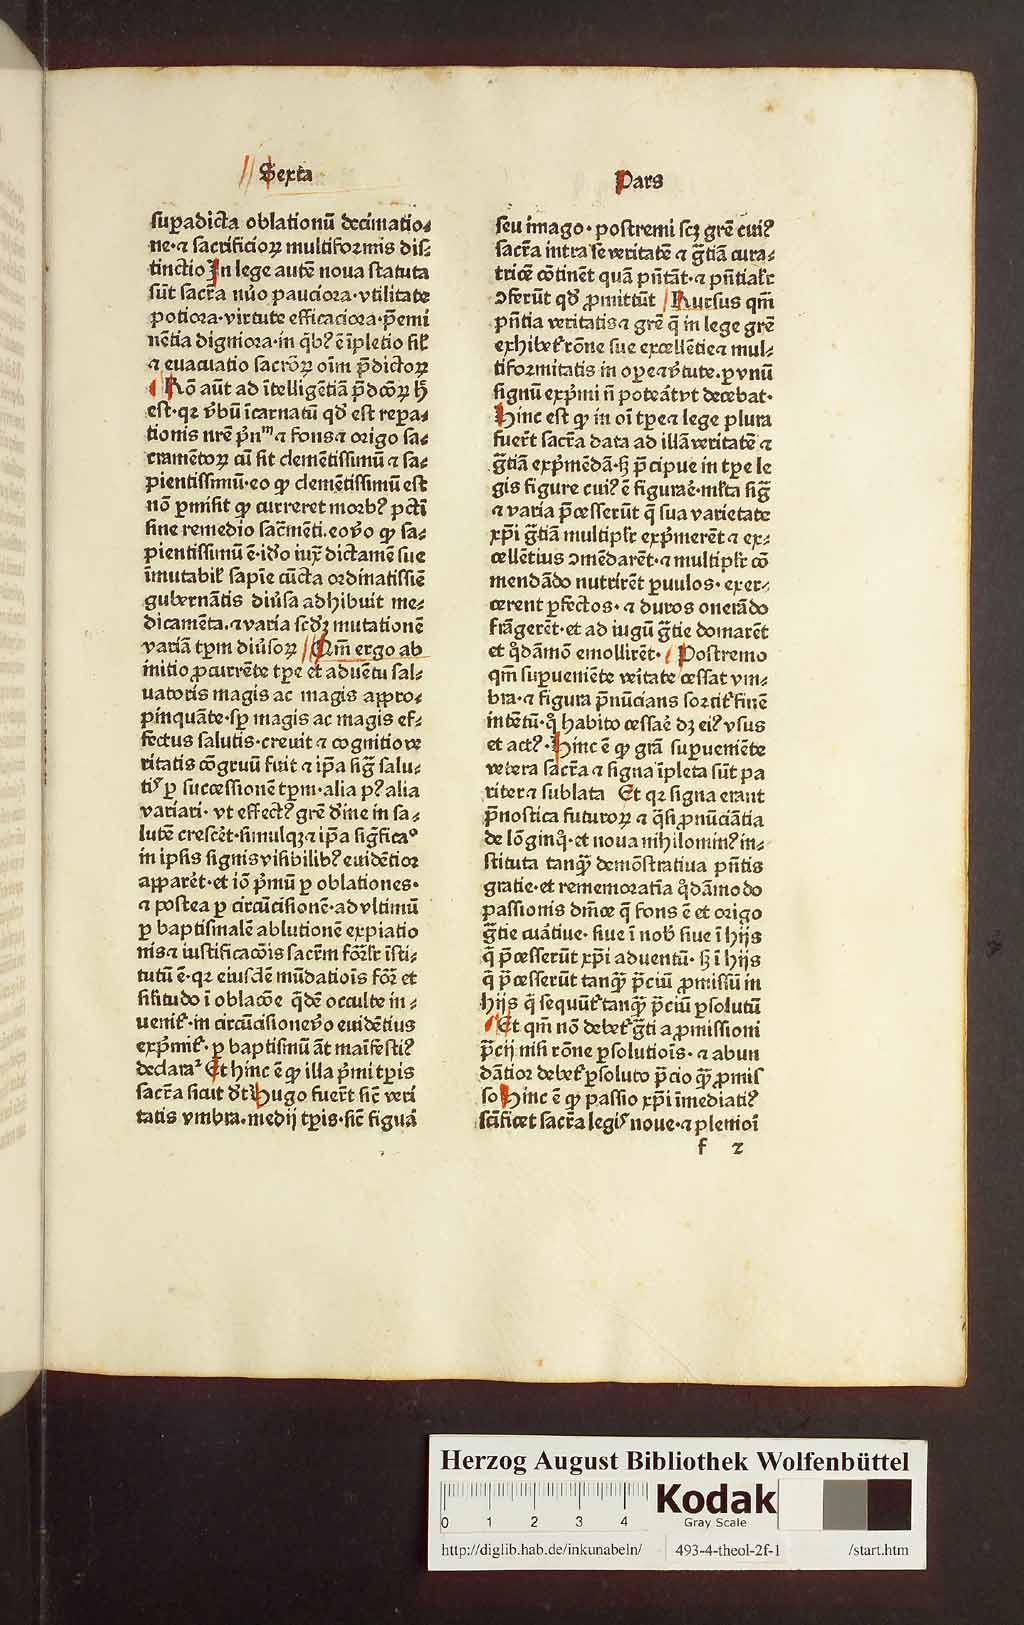 Sexta
Pars
supradicta oblationū decimatio⸗
ne·⁊ sacrificioꝝ multiformis dis⸗
tinctio In lege autē noua statuta
sūt sacr̄a nūo pauciora·vtilitate
potiora·virtute efficaciora·p̄emi
nētia digniora·in qͥbꝰ ē īpletio sil̓
⁊ euacuatio sacrōꝝ oīm p̄dictoꝝ
Rō aūt ad ītelligētiā p̄dcōꝝ h̄
est·qꝛ v̓bū īcarnatū qd̓ est repa⸗
tionis nr̄e pͥnᵐ ⁊ fons⁊ origo sa⸗
cramētoꝝ cū sit clemētissimū ⁊ sa⸗
pientissimū·eo ꝙ clemētissimū est
nō ꝑmisit ꝙ curreret morbꝰ pcti
sine remedio sacm̄enti.eov̓o ꝙ sa⸗
pientissimū ē·id̓o iux̄ dictamē sue
īmutabil̓ sapīe cūcta ordinatissīe
gubernātis diu̓sa adhibuit me⸗
dicamēta.⁊ varia scd̓ꝫ mutationē
variā tꝑm diu̓soꝝ Qm̄ ergo ab
initio ꝓcurrēte tꝑe et aduētu sal⸗
uatoris magis ac magis appro⸗
pinquāte·sꝑ magis ac magis ef⸗
fectus salutis·creuit ⁊ cognitio ve
ritatis cōgruū fuit ⁊ ip̄a siḡ salu⸗
tiˢ ꝑ successionē tꝑm·alia pꝰ alia
variari·vt effectꝰ gr̄e d̓ine in sa⸗
lutē cresc̓et·simulqꝫ⁊ ip̄a sig̓fica°
in ipsis signis visibilibꝰ euidētior
appar̓et·et iō pͥmū ꝑ oblationes·
⁊ postea ꝑ circūcisionē·ad vltimū
ꝑ baptismalē ablutionē expiatio
nis⁊ iustificacōis sacr̄m fōr̄lr̓ īsti⸗
tutū ē·qꝛ eiusdē mūdatiōis fōr̓ et
sil̓itudo ī oblacōe qͥdē occulte in⸗
uenit̓·in circūcisione v̓o euidētius
expͥmit̓·ꝑ baptismū āt māifestiꝰ
declaraᵗ Et hinc ē ꝙ illa pͥmi tꝑis
sacr̄a sicut d̓t Hugo fuer̄t sic̄ veri
tatis vmbra.medij tꝑis·sic̄ figuā
seu imago·postremi scꝫ gr̄e cuiꝰ
sacr̄a intra se veritatē ⁊ gr̄tiā cura⸗
tricē cōtinēt quā pn̄tāt·⁊ pn̄tial̓r
ↄferūt qd̓ ꝓmittūt Rursus qm̄
pn̄tia veritatis⁊ gr̄e q̄ in lege gr̄e
exhibet̓ rōne sue excellētie⁊ mul⸗
tiformitatis in oꝑe⁊v̓tute.ꝑ vnū
signū expͥmi n̄ poteāt vt decebat·
Hinc est ꝙ in oī tꝑe⁊ lege plura
fuer̄t sacr̄a data ad illā veritatē ⁊
gr̄tiā expͥmēdā·sꝫ p̄cipue in tꝑe le
gis figure cuiꝰ ē figurar̓e·ml̓ta sig̓
⁊ varia p̄cesserūt q̄ sua varietate
xp̄i gr̄tiā multiplr̓ expͥmerēt ⁊ ex⸗
cellētius ↄmēdarēt·⁊ multiplr̓ cō
mendādo nutrirēt ꝑuulos·exer⸗
cerent ꝑfectos·⁊ duros onerādo
frāgerēt·et ad iugū gr̄tie domarēt
et qͦdāmō emollirēt· Postremo
qm̄ suꝑueniēte veritate cessat vm⸗
bra·⁊ figura p̄nūcians sortit̓ finē
intētū·qͦ habito cessar̓e dꝫ eiꝰ vsus
et actꝰ·Hinc ē ꝙ gr̄a suꝑueniēte
vetera sacr̄a ⁊ signa īpleta sūt pa
riter⁊ sublata Et qꝛ signa erant
p̄nostica futuroꝝ ⁊ qͣsi ꝓnūciātia
de lōginqͦ·et noua nihilominꝰ in⸗
stituta tanqͣꝫ demōstratiua pn̄tis
gratie·et rememoratīa qͦdāmodo
passionis dn̄ice q̄ fons ē et origo
gr̄tie cuātiue·siue ī nob̓ siue ī hijs
q̄ p̄cesserūt xp̄i aduentū·sꝫ ī hijs
q̄ p̄cesserūt tanqͣꝫ p̄ciū ꝓmissū in
hijs q̄ sequūt̓ tanqͣꝫ p̄ciū ꝑsolutū
Et qm̄ nō debet̓ gr̄ti a ꝓmissioni
p̄cij nisi rōne ꝑsolutiōis·⁊ abun
dātior debet̓ ꝑsoluto p̄cio qͣꝫ ꝓmis
so Hinc ē ꝙ passio xp̄i īmediatiꝰ
scīficet sacr̄a legiˢ noue·⁊ plenioī
f 2
Herzog August Bibliothek Wolfenbüttel
0 1 2 3 4
Kodak
Gray Scale
http://diglib.hab.de/inkunabeln/ 493-4-theol-2f-1 /start.htm